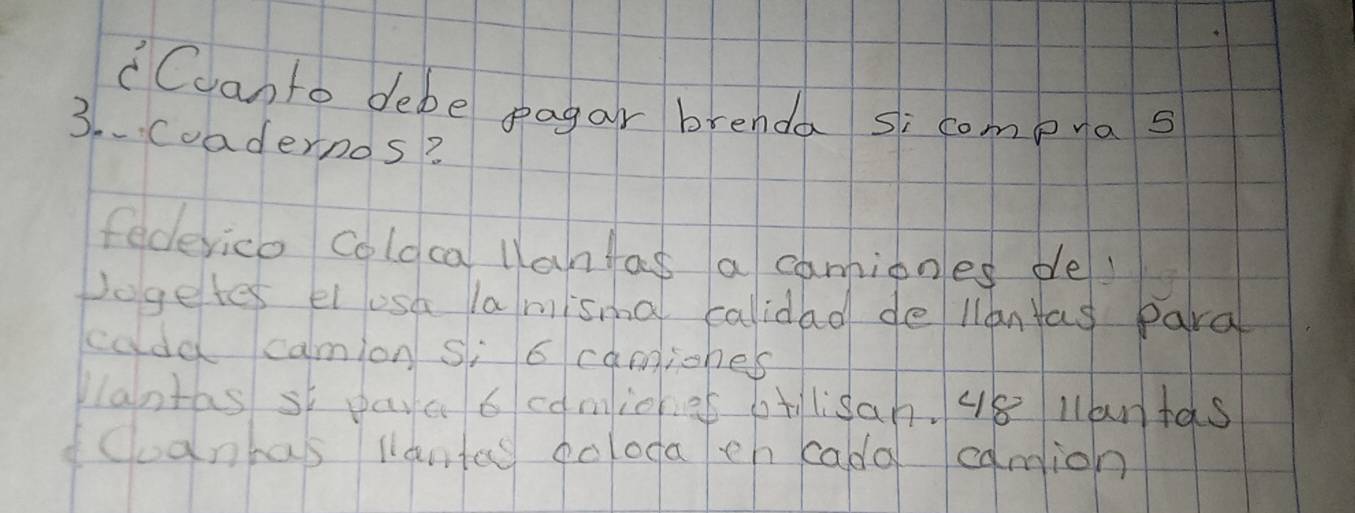 ¿Cuanto debe pagar brenda si compra 5
3.- cuadernos?
federico coloca llantas a camiones de
Jogetes el usa la misma calidad de llantas para
cada camion si 6 camiones
llantas si para 6 camiones utilisan. 48 llantas
¿Cuantas llantas coloca en cada camion